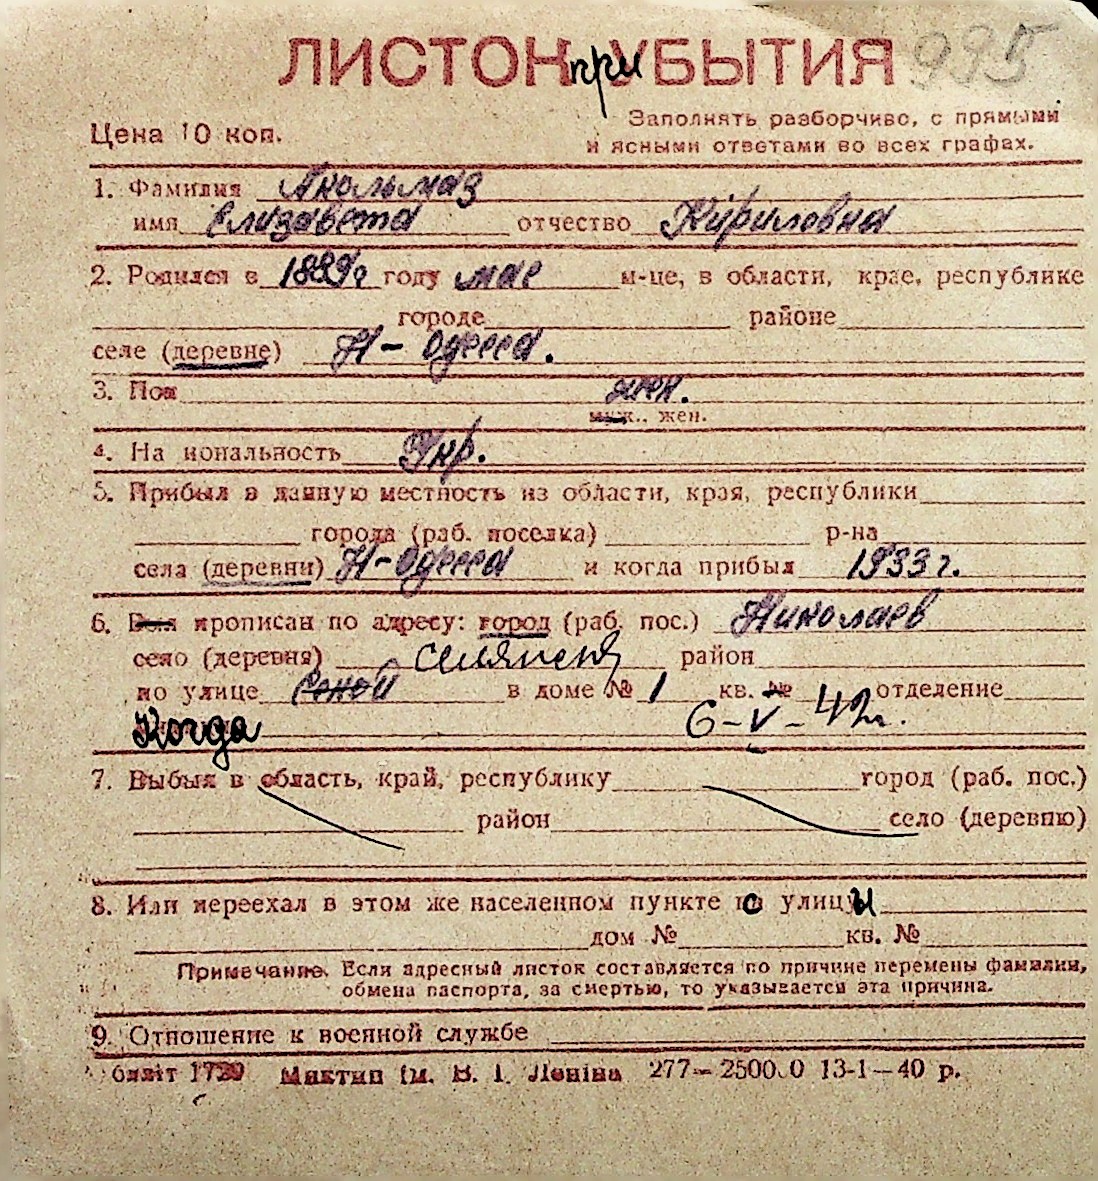 ЛИСТОК при УБЫТИЯ 995
Цена 10 коп.
Заполнять разборчиво, с прямыми
и ясными ответами во всех графах.
1. Фамилия
имя Елизавета отчество Кириловна
2. Родился в году мае м-це, в области, крае, республике
городе районе
селе (деревне) Н-Одесса.
3. Пол жен.
муж., жен.
4. На иональность Укр.
5. Прибыл в данную местность из области, края, республики
города (раб. поселка) р-на
села (деревни) Н-Одесса и когда прибыл 1933 г.
6. Был прописан по адресу: город (раб. пос.) Николаев
село (деревня) район
по улице в доме № 1 кв. № отделение
Когда 6-V-42г.
7. Выбыл в область, край, республику город (раб. пос.)
район село (деревню)
8. Или переехал в этом же населенном пункте с улицы
дом № кв. №
Примечание. Если адресный листок составляется по причине перемены фамилии,
обмена паспорта, за смертью, то указывается эта причина.
9. Отношение к военной службе
бліт Миктип ім. В. І. Леніна 277— 2500.0 13-1—40 р.